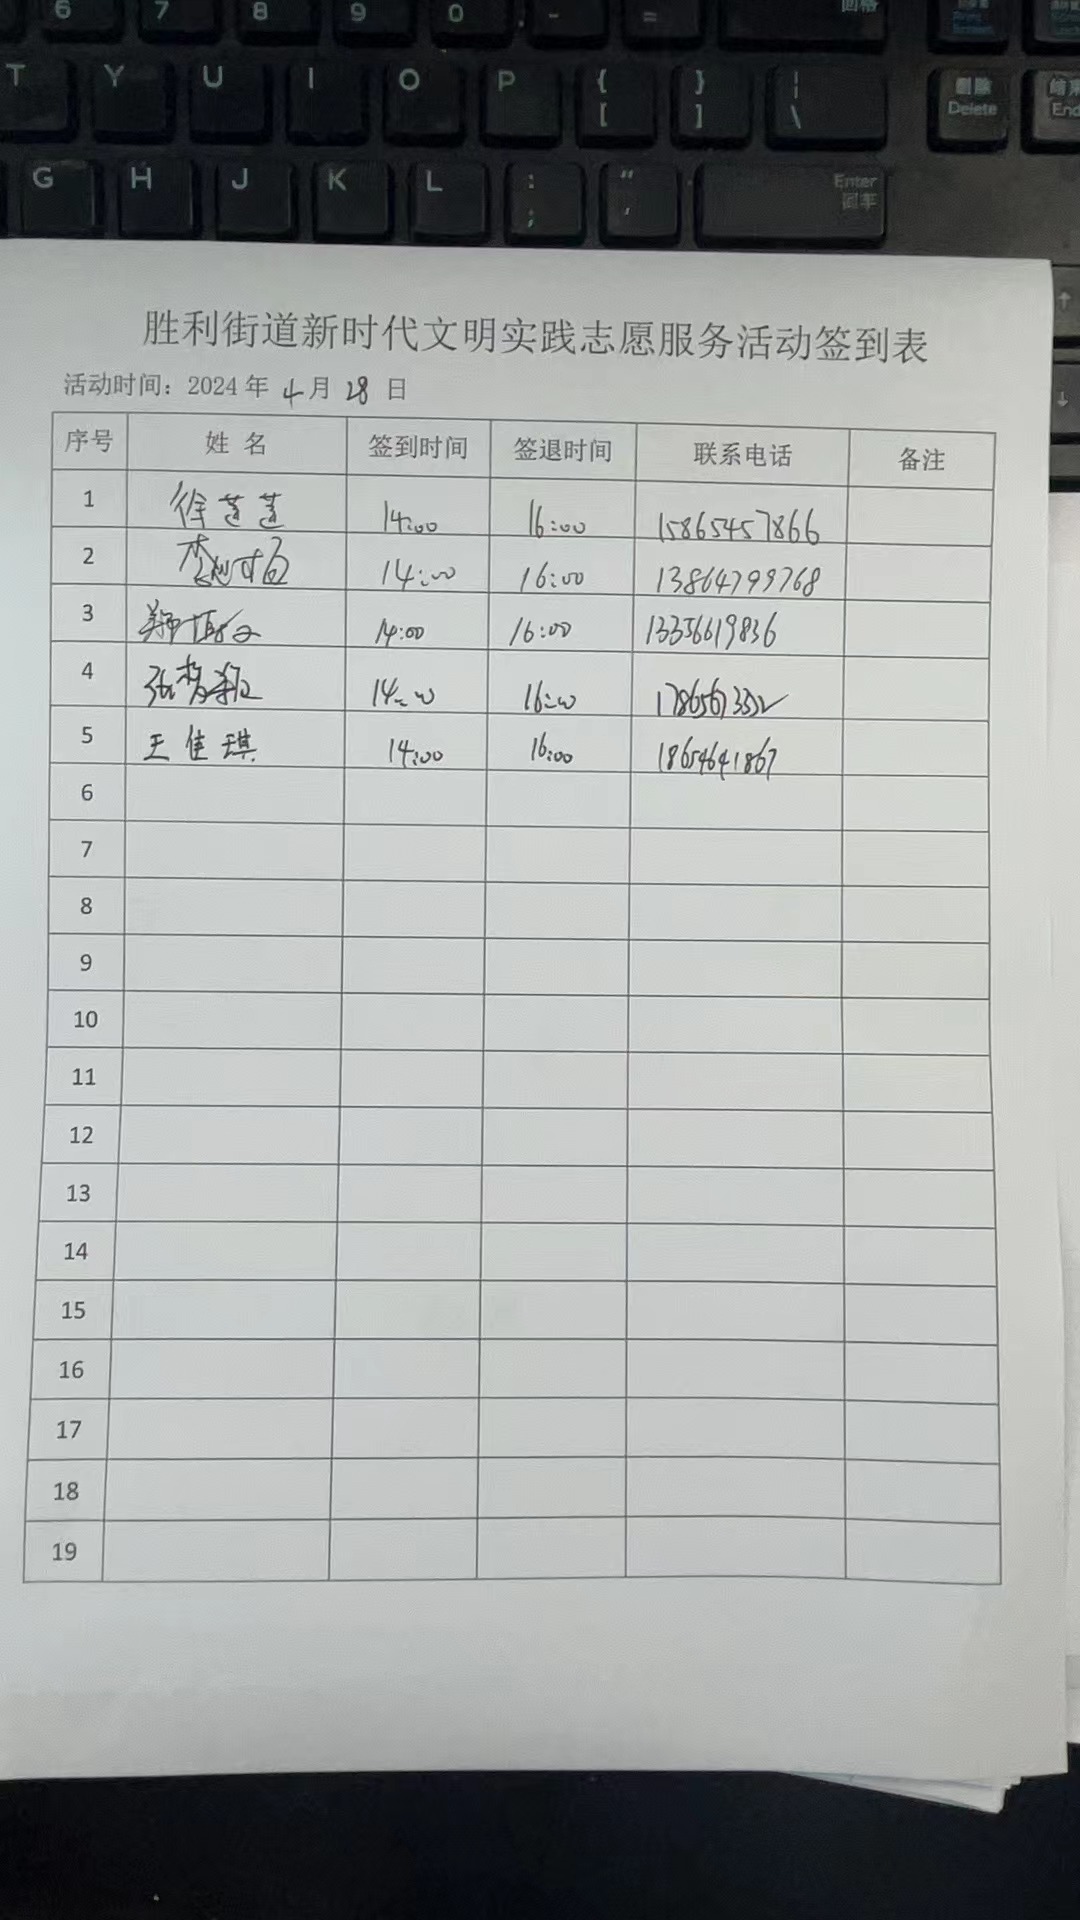 6 7 8 9 0 - = 回格
T Y U I O P { [ } ] | \ 删除 Delete 结束 End
G H J K L : ; " ' Enter 回车
胜利街道新时代文明实践志愿服务活动签到表
活动时间：2024 年 4 月 28 日
序号 姓 名 签到时间 签退时间 联系电话 备注
1 徐莲莲 14:00 16:00 15865457866
2 14:00 16:00 13864799768
3 14:00 16:00 13356619836
4 张 14:00 16:00
5 王佳琪 14:00 16:00 18654641867
6
7
8
9
10
11
12
13
14
15
16
17
18
19